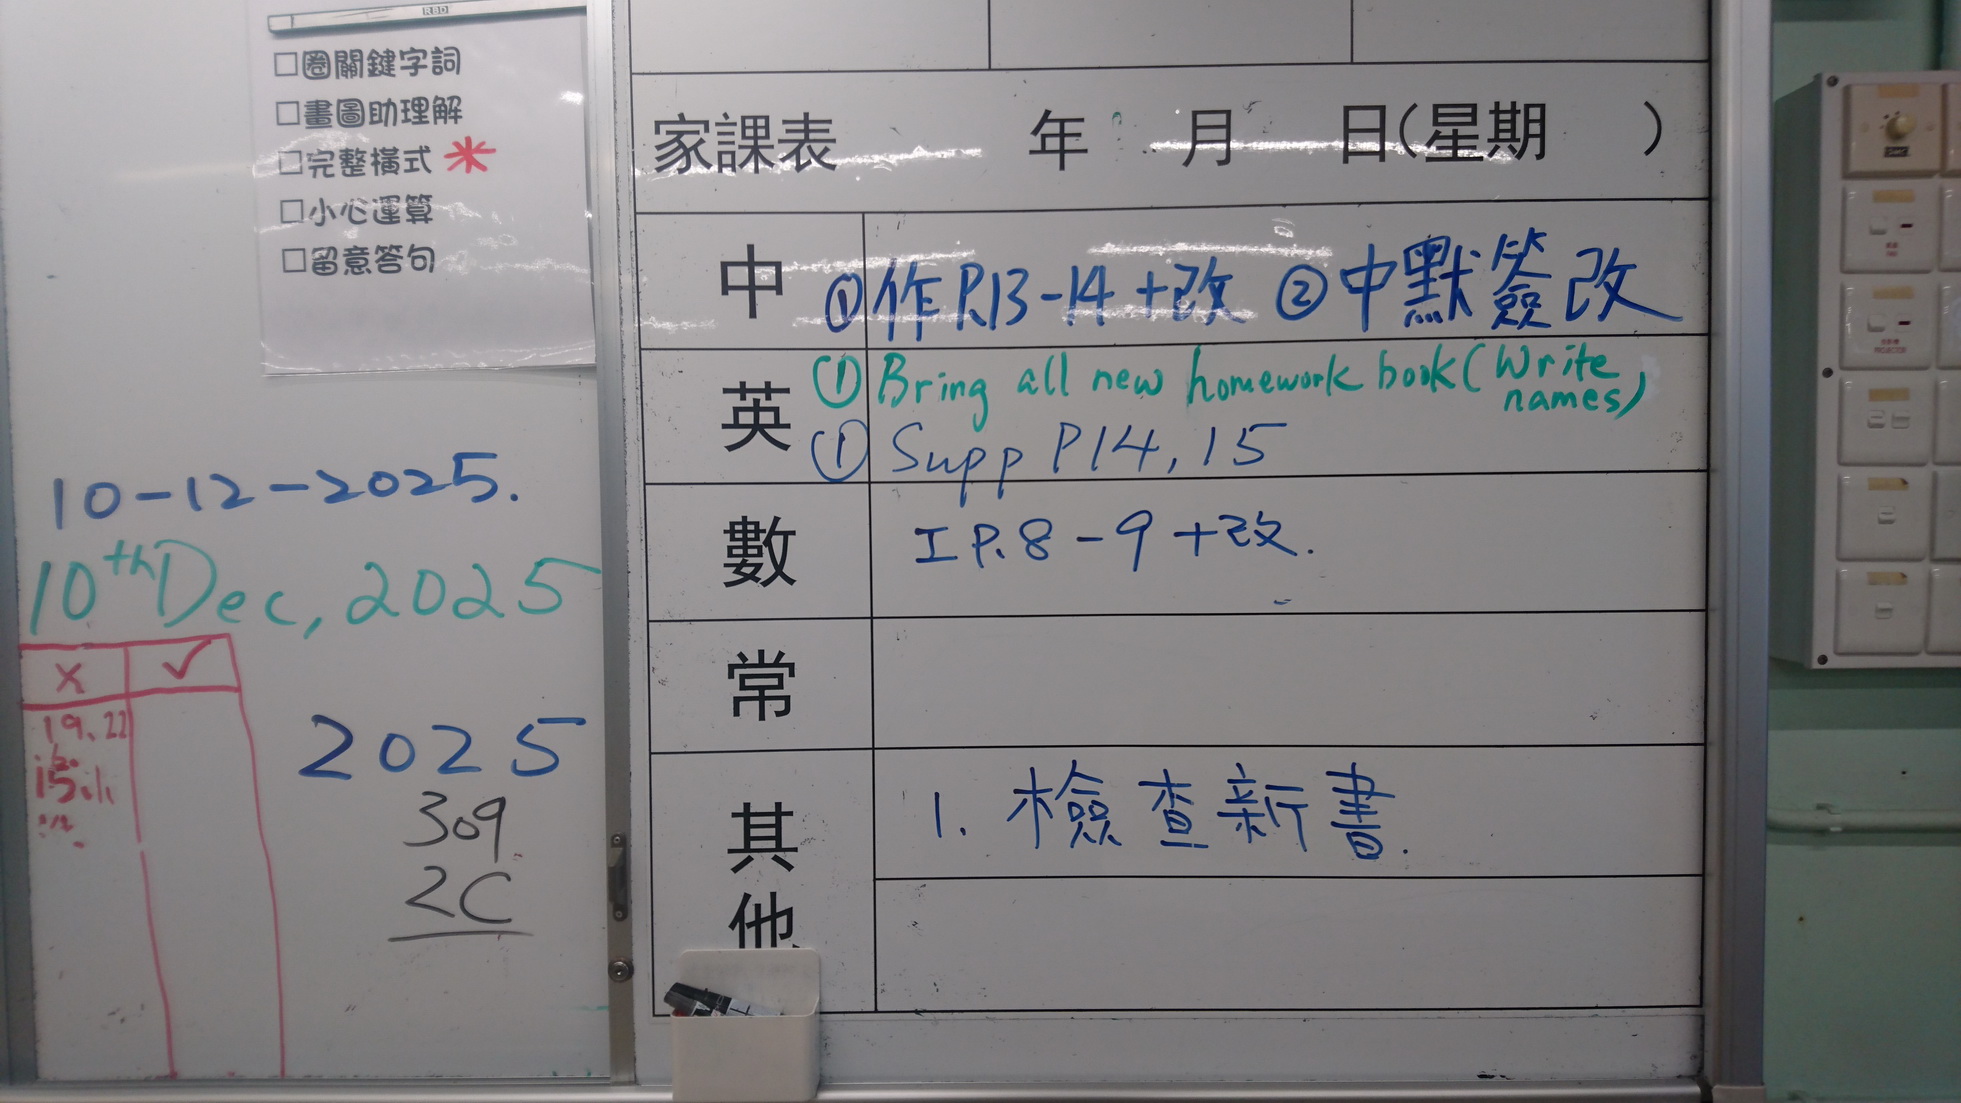 RBD
□圈關鍵字詞
□畫圖助理解
□完整橫式 米
□小心運算
□留意答句
10-12-2025.
10th Dec, 2025
× ✓
19、22
15
2025
309
2C
家課表 年 月 日(星期 )
中 ①作P.13-14+改 ②中默簽改
英 ① Bring all new homework book (Write names)
① Supp P14, 15
數 工 P.8-9+改.
常
其他 1. 檢查新書.
PROJECTOR